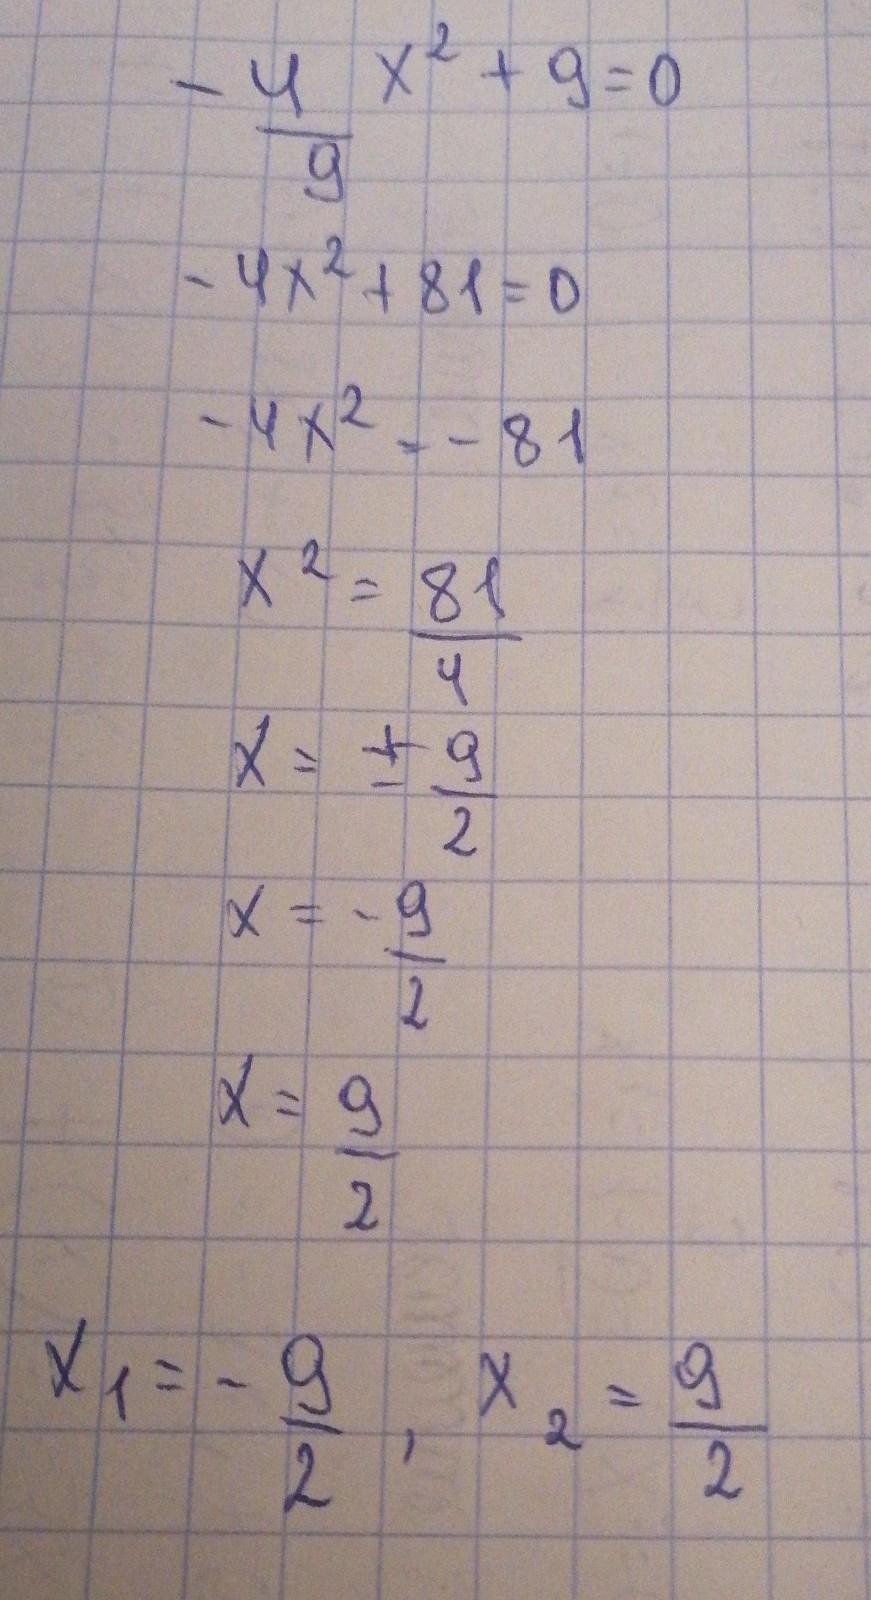 -4/9 x² + 9 = 0
-4x² + 81 = 0
-4x² = -81
x² = 81/4
x = ± 9/2
x = -9/2
x = 9/2
x₁ = -9/2 , x₂ = 9/2